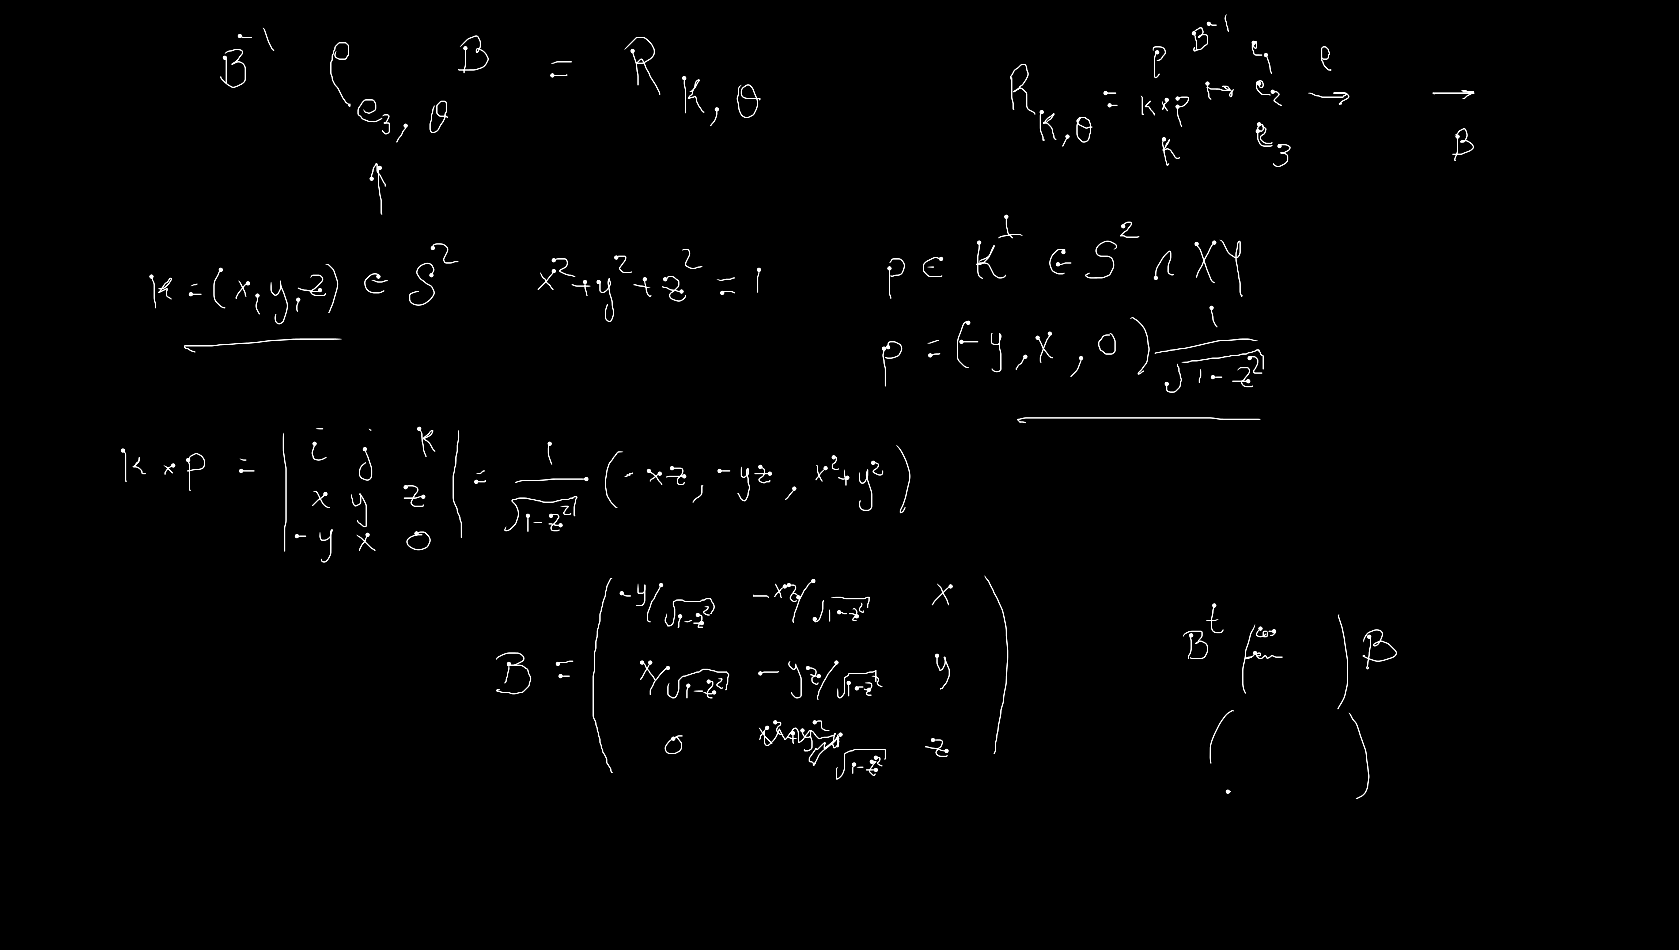 B⁻¹ ρ_{e₃, θ} B = R_{K, θ}
R_{K,θ} = p B⁻¹ e₁ ρ
k×p ↦ e₂ → →
k e₃ B
↑
k = (x, y, z) ∈ S² x² + y² + z² = 1
p ∈ K^⊥ ∈ S² ∩ XY
p = (-y, x, 0) 1/√(1-z²)
k × p = | i j k |
| x y z |
| -y x 0 |
= 1/√(1-z²) (-xz, -yz, x²+y²)
B = ( -y/√(1-z²) -xz/√(1-z²) x )
( x/√(1-z²) -yz/√(1-z²) y )
( 0 /√(1-z²) z )
Bᵗ ( cos ) B
( . )